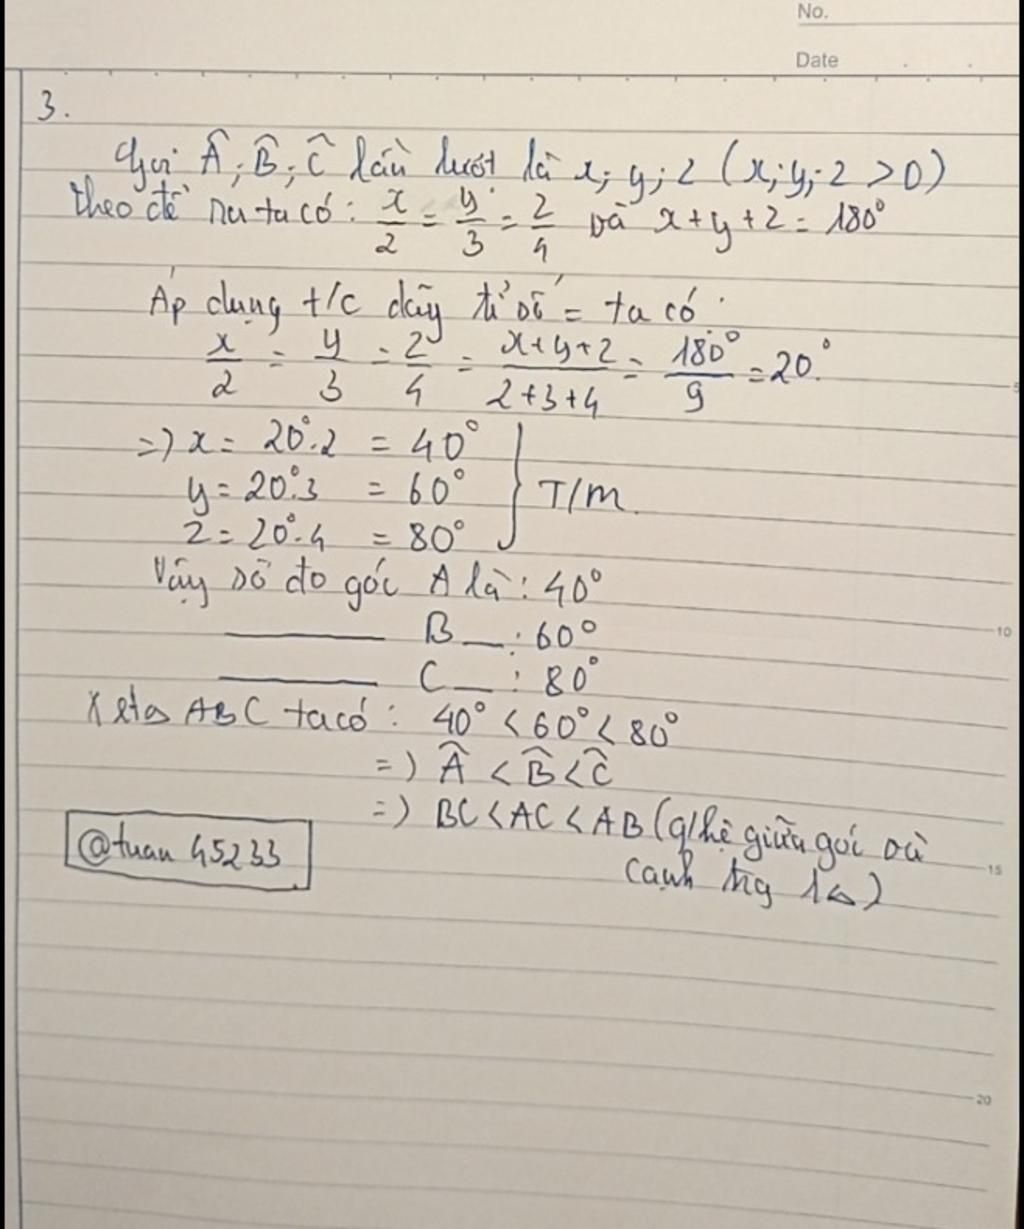 No.
Date
3.
Gọi Â; B̂; Ĉ lần lượt là x; y; z (x; y; z > 0)
theo đề ra ta có: x/2 = y/3 = z/4 và x + y + z = 180°
Áp dụng t/c dãy tỉ số = ta có
x/2 = y/3 = z/4 = x+y+z/2+3+4 = 180°/9 = 20°
=> x = 20°.2 = 40°
y = 20°.3 = 60°
z = 20°.4 = 80°
T/m.
Vậy số đo góc A là: 40°
B : 60°
C : 80°
Xét △ ABC ta có: 40° < 60° < 80°
=> Â < B̂ < Ĉ
=> BC < AC < AB (q/hệ giữa góc và
cạnh trg 1△)
@tuan 45233
5
10
15
20